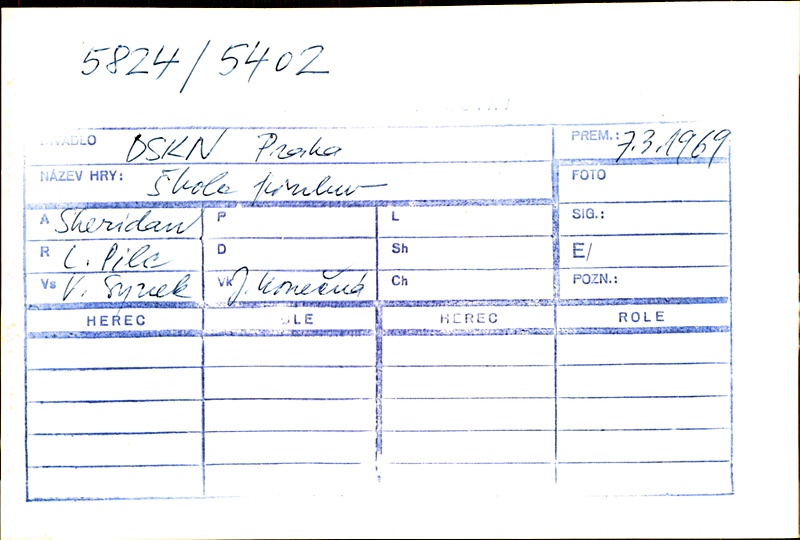 5824/5402
DIVADLO DSKN Praha PREM.: 7.3.1969
NÁZEV HRY: Škola pomluv FOTO
A Sheridan P L SIG.:
R L. Pilc D Sh E/
Vs V. Synek Vk J. Konečná Ch POZN.:
HEREC ROLE HEREC ROLE